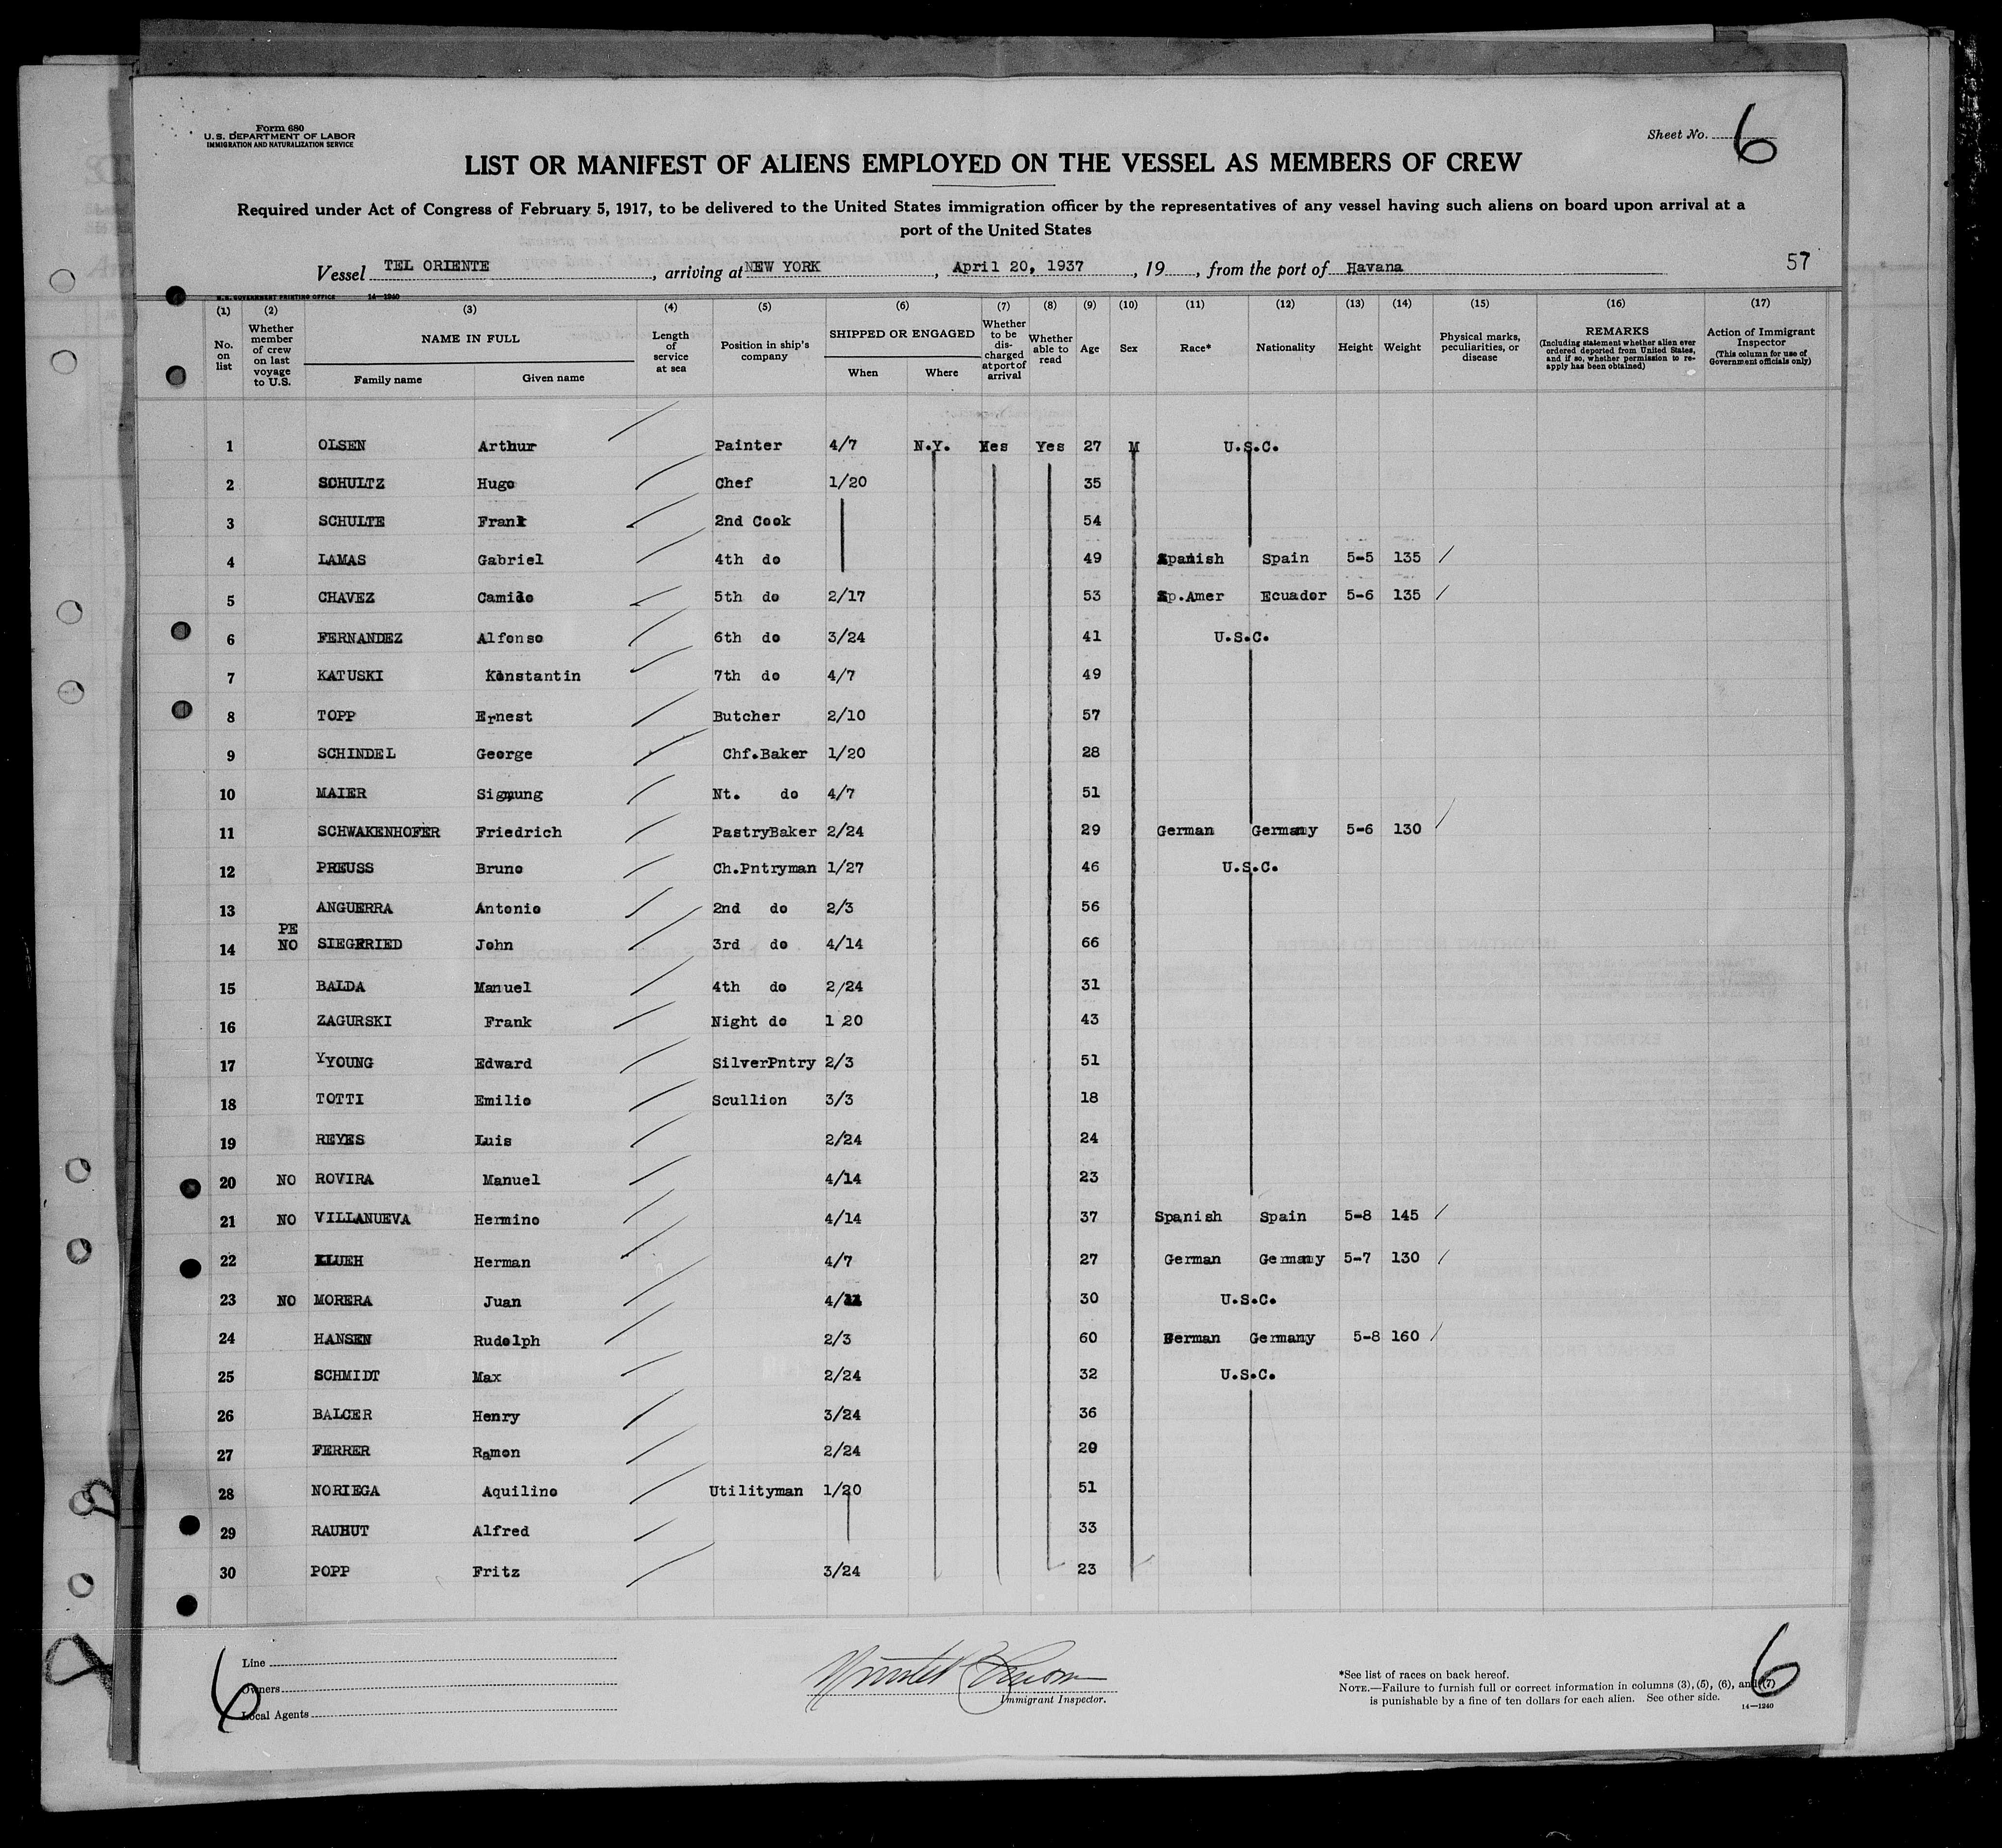 Form 680
U. S. DEPARTMENT OF LABOR
IMMIGRATION AND NATURALIZATION SERVICE
Sheet No. 6
LIST OR MANIFEST OF ALIENS EMPLOYED ON THE VESSEL AS MEMBERS OF CREW
Required under Act of Congress of February 5, 1917, to be delivered to the United States immigration officer by the representatives of any vessel having such aliens on board upon arrival at a
port of the United States
Vessel TEL ORIENTE, arriving at NEW YORK, April 20, 1937, 19, from the port of Havana 57
U.S. GOVERNMENT PRINTING OFFICE 14—1240
(1) (2) (3) (4) (5) (6) (7) (8) (9) (10) (11) (12) (13) (14) (15) (16) (17)
No. on list
Whether member of crew on last voyage to U.S.
NAME IN FULL
Family name Given name
Length of service at sea
Position in ship's company
SHIPPED OR ENGAGED
When Where
Whether to be discharged at port of arrival
Whether able to read
Age
Sex
Race*
Nationality
Height
Weight
Physical marks, peculiarities, or disease
REMARKS
(Including statement whether alien ever ordered deported from United States, and if so, whether permission to reapply has been obtained)
Action of Immigrant Inspector
(This column for use of Government officials only)
1 OLSEN Arthur Painter 4/7 N.Y. Yes Yes 27 M U.S.C.
2 SCHULTZ Hugo Chef 1/20 35
3 SCHULTE Frank 2nd Cook 54
4 LAMAS Gabriel 4th do 49 Spanish Spain 5-5 135
5 CHAVEZ Camilo 5th do 2/17 53 Sp.Amer Ecuador 5-6 135
6 FERNANDEZ Alfonso 6th do 3/24 41 U.S.C.
7 KATUSKI Konstantin 7th do 4/7 49
8 TOPP Ernest Butcher 2/10 57
9 SCHINDEL George Chf.Baker 1/20 28
10 MAIER Sigmung Nt. do 4/7 51
11 SCHWAKENHOFER Friedrich PastryBaker 2/24 29 German Germany 5-6 130
12 PREUSS Bruno Ch.Pntryman 1/27 46 U.S.C.
13 ANGUERRA Antonio 2nd do 2/3 56
PE
14 NO SIEGFRIED John 3rd do 4/14 66
15 BALDA Manuel 4th do 2/24 31
16 ZAGURSKI Frank Night do 1 20 43
17 YYOUNG Edward SilverPntry 2/3 51
18 TOTTI Emilio Scullion 3/3 18
19 REYES Luis 2/24 24
20 NO ROVIRA Manuel 4/14 23
21 NO VILLANUEVA Hermino 4/14 37 Spanish Spain 5-8 145
22 KLUEH Herman 4/7 27 German Germany 5-7 130
23 NO MORERA Juan 30 U.S.C.
24 HANSEN Rudolph 2/3 60 German Germany 5-8 160
25 SCHMIDT Max 2/24 32 U.S.C.
26 BALCER Henry 3/24 36
27 FERRER Ramon 2/24 20
28 NORIEGA Aquilino Utilityman 1/20 51
29 RAUHUT Alfred 33
30 POPP Fritz 3/24 23
Line
Owners
Local Agents
6
Immigrant Inspector.
*See list of races on back hereof.
NOTE.—Failure to furnish full or correct information in columns (3), (5), (6), and (7)
is punishable by a fine of ten dollars for each alien. See other side.
14—1240
6